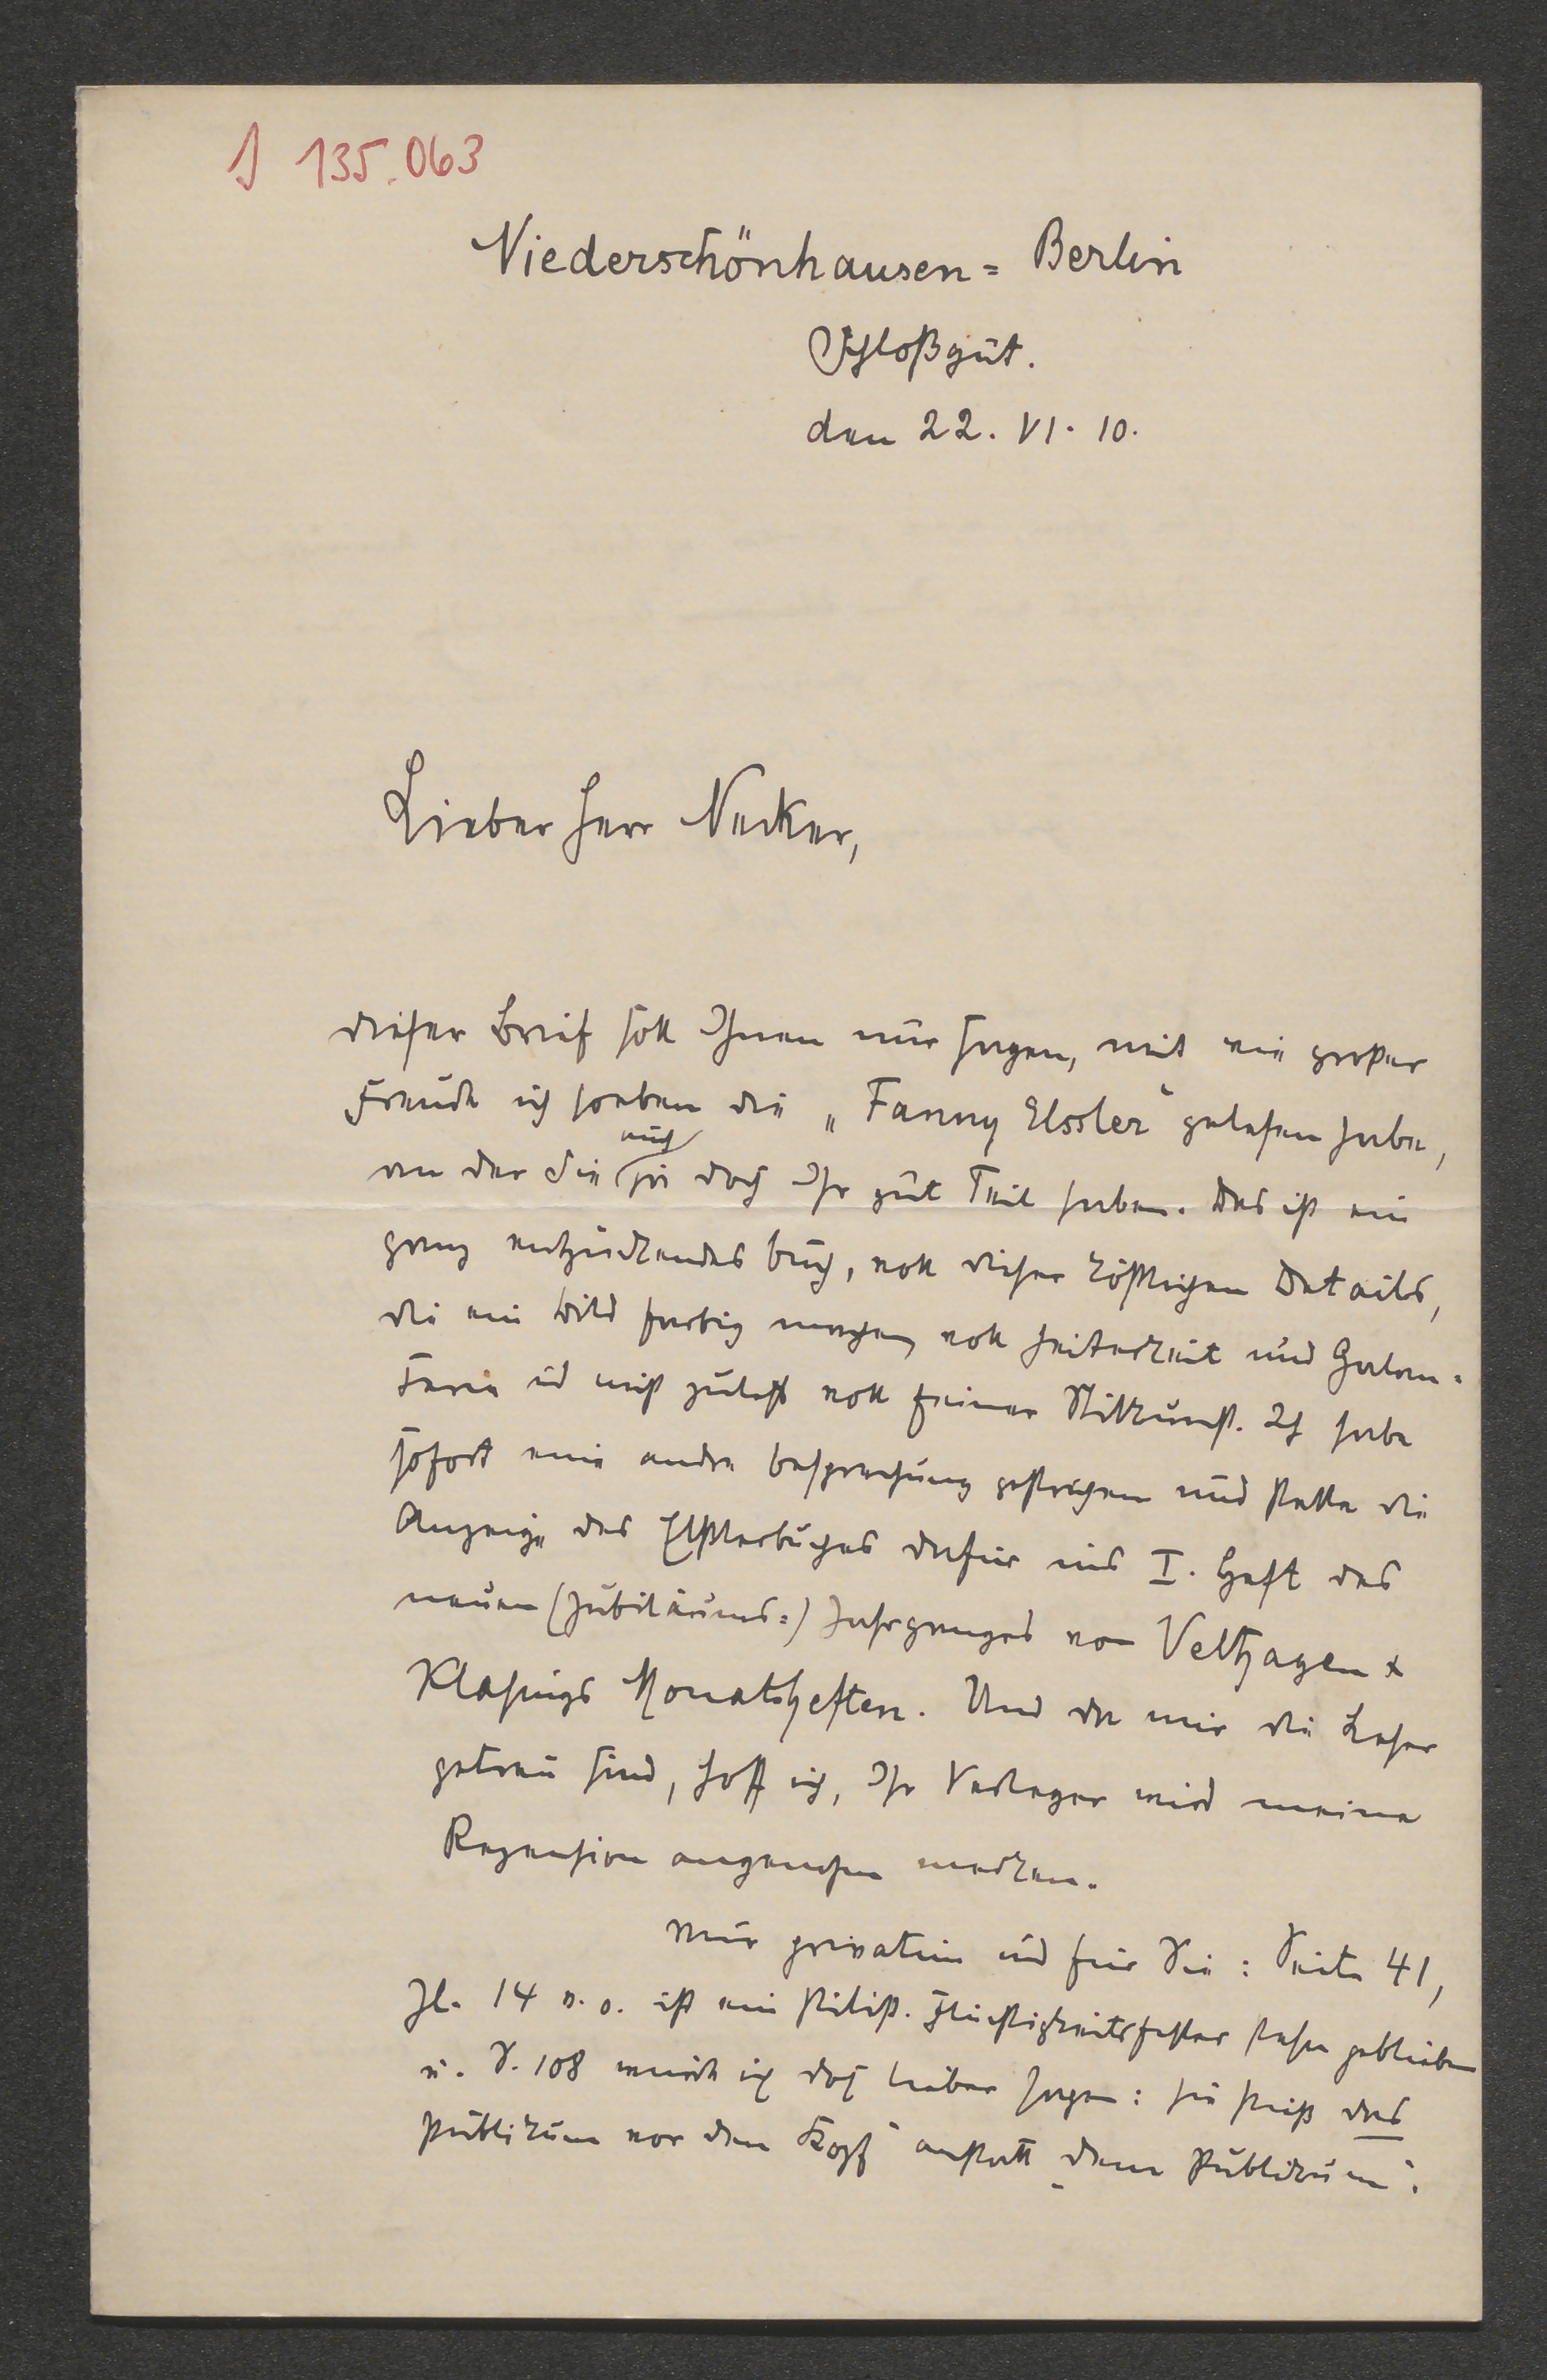 J 135.063
Niederschönhausen = Berlin
Schloßgut.
den 22. VI. 10.
Lieber Herr Necker,
dieser Brief soll Ihnen nur sagen, mit wie großer
Freude ich soeben die „Fanny Elssler“ gelesen habe,
auch
an der Sie ja doch Ihr gut Teil haben. Das ist ein
ganz entzückendes Buch, voll dieser köstlichen Details,
die ein Bild farbig machen, voll Heiterkeit und Galan=
terie und nicht zuletzt voll feiner Stilkunst. Ich habe
sofort eine andre Besprechung gestrichen und stelle die
Anzeige des Elßlerbuches dafür ins I. Heft des
neuen (Jubiläums=) Jahrganges von Velhagen &
Klasings Monatsheften. Und da mir die Leser
getreu sind, hoff ich, Ihr Verleger wird meine
Rezension angenehm merken.
Nur privatim und für Sie: Seite 41,
Zl. 14 v. o. ist ein stilist. Flüchtigkeitsfehler stehn geblieben
u. S. 108 würd ich doch lieber sagen: sie stieß das
Publikum vor den Kopf“ anstatt „dem Publikum“.